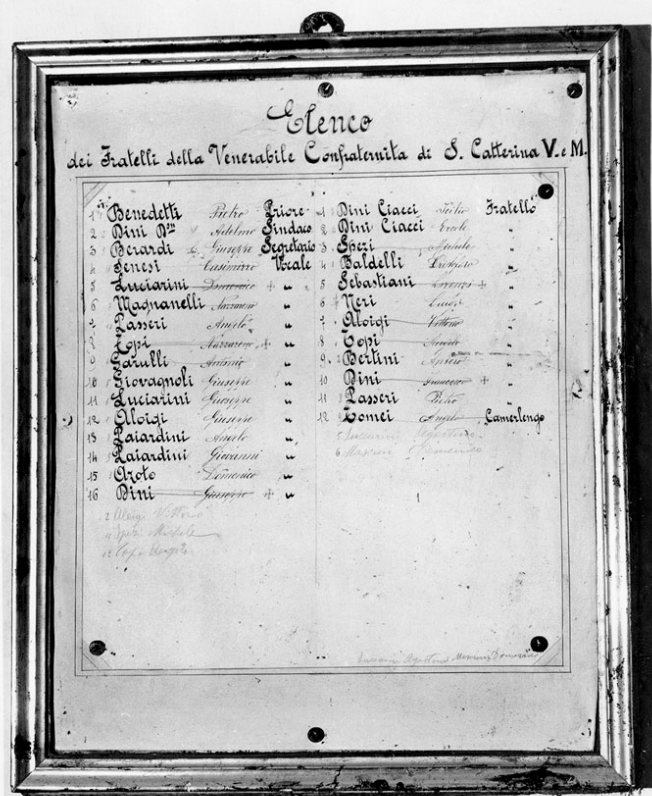 Elenco
dei Fratelli della Venerabile Confraternita di S. Catterina V. e M.
1 Benedetti Pietro Priore
2 Dini B.ne Adelmo Sindaco
3 Berardi Giuseppe Segretario
4 Senesi Casimirro Vocale
5 Luciarini Domenico + "
6 Magnanelli Nazzareno "
7 Passeri Angelo "
8 Topi Nazzareno + "
9 Garulli Antonio "
10 Giovagnoli Giuseppe "
11 Luciarini Giuseppe "
12 Aloigi Giuseppe "
13 Paiardini Angelo "
14 Paiardini Giovanni "
15 Aroto Domenico "
16 Dini Giuseppe + "
2 Aloigi Vittorio
Michele
12 Topi Angelo
1 Dini Ciacci Fratello
2 Dini Ciacci "
3 Speri "
4 Baldelli "
5 Sebastiani Lorenzo + "
6 Neri Luigi "
7 Aloigi Vittorio "
8 Topi Angelo "
9 Bertini "
10 Dini Francesco + "
11 Passeri Pietro "
12 Tomei Angelo Camerlengo
5 Agostino
6 Mancini Domenico
Agostino Mancini Domenico